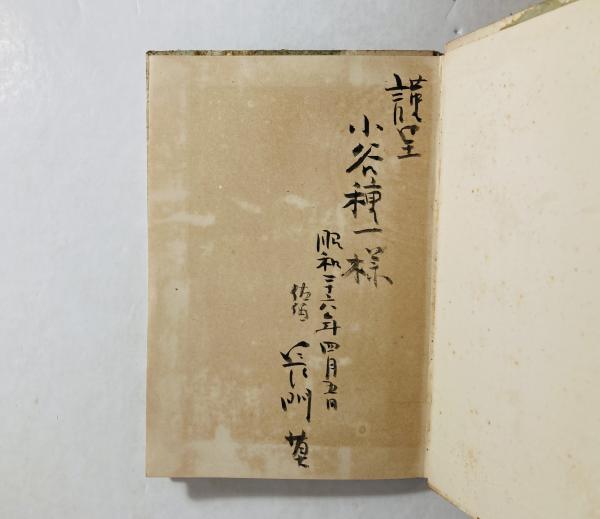 謹呈
小谷種一様
昭和二十六年四月五日
佐伯
長門莫